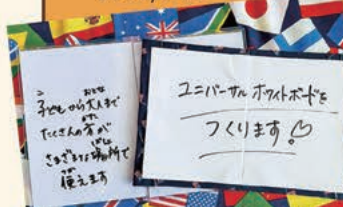 子どもから大人まで
たくさんの方が
さまざまな場所で
使えます
ユニバーサル ホワイトボードを
つくります!